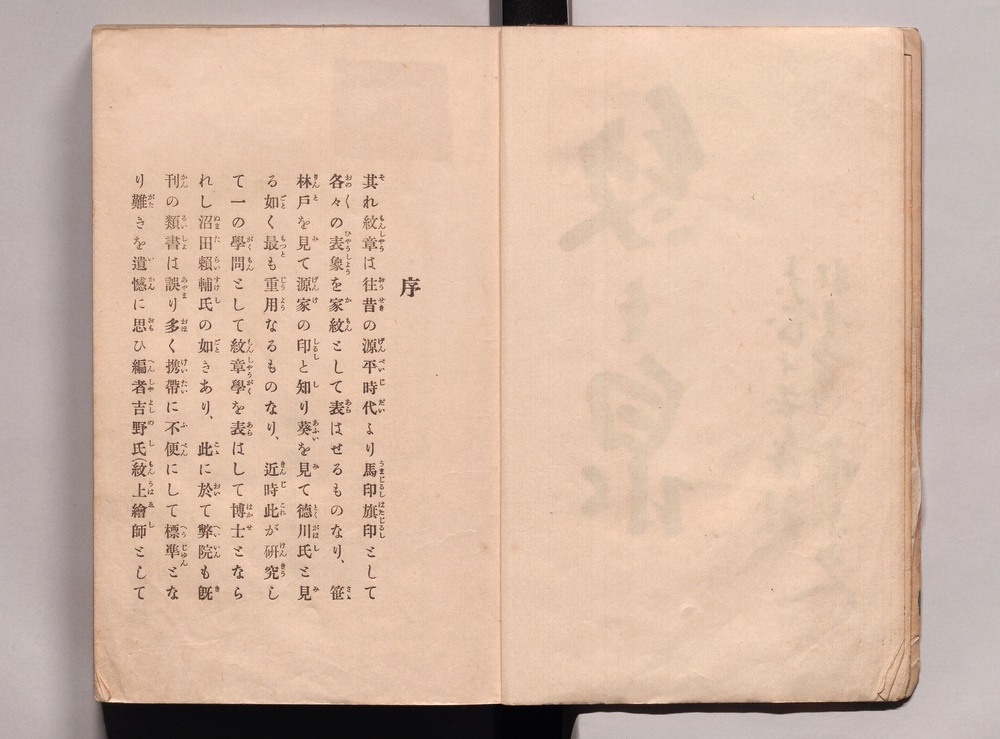 序
其れ紋章は往昔の源平時代より馬印旗印として
各々の表象を家紋として表はせるものなり、笹
林戸を見て源家の印と知り葵を見て德川氏と見
る如く最も重用なるものなり、近時此が硏究し
て一の學問として紋章學を表はして博士となら
れし沼田賴輔氏の如きあり、此に於て弊院も旣
刊の類書は誤り多く携帶に不便にして標準とな
り難きを遺憾に思ひ編者吉野氏(紋上繪師として